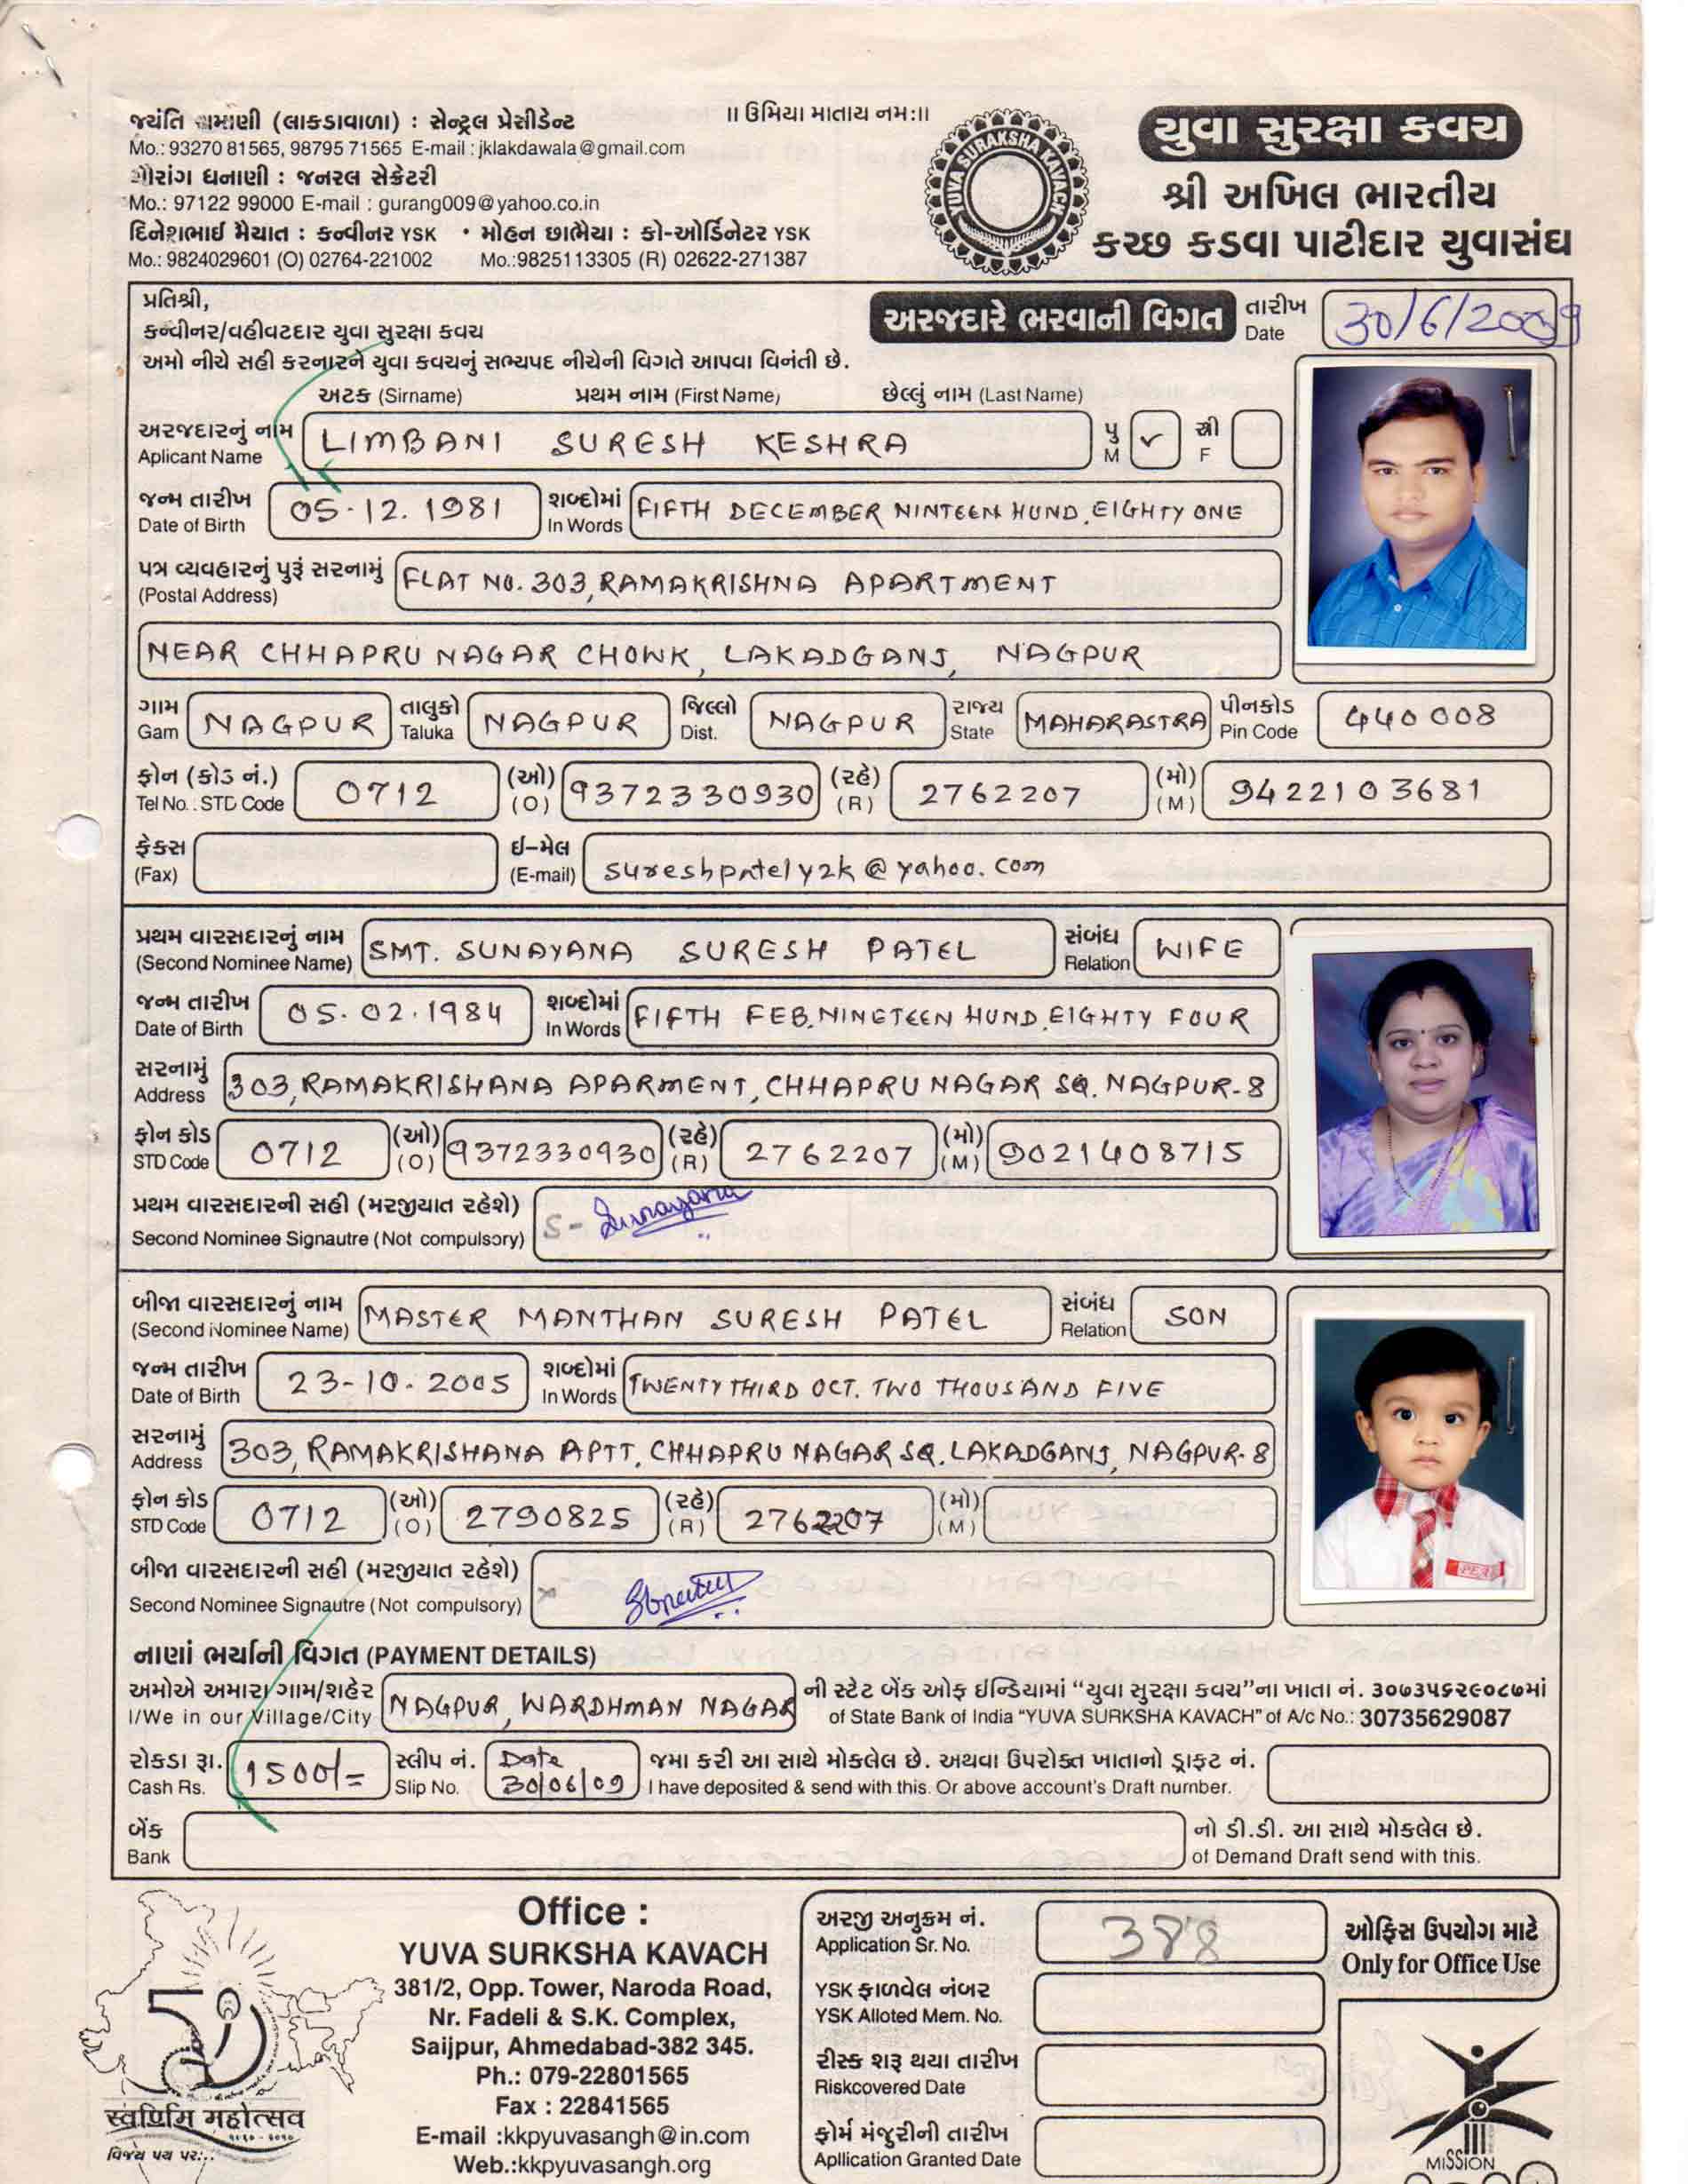 ॥ ઉમિયા માતાય નમઃ॥
જયંતિ રામાણી (લાકડાવાળા) : સેન્ટ્રલ પ્રેસીડેન્ટ
Mo.: 93270 81565, 98795 71565 E-mail : jklakdawala@gmail.com
ગૌરાંગ ધનાણી : જનરલ સેક્રેટરી
Mo.: 97122 99000 E-mail : gurang009@yahoo.co.in
દિનેશભાઈ મૈયાત : કન્વીનર YSK • મોહન છાભૈયા : કો-ઓર્ડિનેટર YSK
Mo.: 9824029601 (O) 02764-221002 Mo.:9825113305 (R) 02622-271387
YUVA SURAKSHA KAVACH
યુવા સુરક્ષા કવચ
શ્રી અખિલ ભારતીય
કચ્છ કડવા પાટીદાર યુવાસંઘ
પ્રતિશ્રી,
કન્વીનર/વહીવટદાર યુવા સુરક્ષા કવચ
અમો નીચે સહી કરનારને યુવા કવચનું સભ્યપદ નીચેની વિગતે આપવા વિનંતી છે.
અરજદારે ભરવાની વિગત
તારીખ
Date 30/6/2009
અટક (Sirname) પ્રથમ નામ (First Name) છેલ્લું નામ (Last Name)
અરજદારનું નામ
Aplicant Name LIMBANI SURESH KESHRA પુ M ✓ સ્ત્રી F
જન્મ તારીખ શબ્દોમાં
Date of Birth 05-12. 1981 In Words FIFTH DECEMBER NINTEEN HUND.EIGHTY ONE
પત્ર વ્યવહારનું પુરૂં સરનામું
(Postal Address) FLAT NO. 303, RAMAKRISHNA APARTMENT
NEAR CHHAPRU NAGAR CHOWK, LAKADGANJ, NAGPUR
ગામ તાલુકો જિલ્લો રાજ્ય પીનકોડ
Gam NAGPUR Taluka NAGPUR Dist. NAGPUR State MAHARASTRA Pin Code 440 008
ફોન (કોડ નં.) (ઓ) (રહે) (મો)
Tel No. : STD Code 0712 (O) 9372330930 (R) 2762207 (M) 9422103681
ફેક્સ ઈ-મેલ
(Fax) (E-mail) sureshpately2k@yahoo.com
પ્રથમ વારસદારનું નામ સંબંધ
(Second Nominee Name) SMT. SUNAYANA SURESH PATEL Relation WIFE
જન્મ તારીખ શબ્દોમાં
Date of Birth 05.02.1984 In Words FIFTH FEB.NINETEEN HUND.EIGHTY FOUR
સરનામું
Address 303, RAMAKRISHANA APARMENT, CHHAPRU NAGAR SQ. NAGPUR-8
ફોન કોડ (ઓ) (રહે) (મો)
STD Code 0712 (O) 9372330930 (R) 2762207 (M) 9021408715
પ્રથમ વારસદારની સહી (મરજીયાત રહેશે)
Second Nominee Signautre (Not compulsory) S- Sunayana
બીજા વારસદારનું નામ સંબંધ
(Second Nominee Name) MASTER MANTHAN SURESH PATEL Relation SON
જન્મ તારીખ શબ્દોમાં
Date of Birth 23-10-2005 In Words TWENTY THIRD OCT. TWO THOUSAND FIVE
સરનામું
Address 303, RAMAKRISHANA APTT, CHHAPRU NAGAR SQ. LAKADGANJ, NAGPUR-8
ફોન કોડ (ઓ) (રહે) (મો)
STD Code 0712 (O) 2790825 (R) 2762207 (M)
બીજા વારસદારની સહી (મરજીયાત રહેશે)
Second Nominee Signautre (Not compulsory) x
નાણાં ભર્યાની વિગત (PAYMENT DETAILS)
અમોએ અમારા ગામ/શહેર ની સ્ટેટ બેંક ઓફ ઈન્ડિયામાં “યુવા સુરક્ષા કવચ”ના ખાતા નં. ૩૦૭૩૫૬૨૯૦૮૭માં
I/We in our Village/City NAGPUR, WARDHMAN NAGAR of State Bank of India “YUVA SURKSHA KAVACH” of A/c No.: 30735629087
રોકડા રૂા. સ્લીપ નં. Date જમા કરી આ સાથે મોકલેલ છે. અથવા ઉપરોક્ત ખાતાનો ડ્રાફ્ટ નં.
Cash Rs. 1500/= Slip No. 30/06/09 I have deposited & send with this. Or above account's Draft number.
બેંક નો ડી.ડી. આ સાથે મોકલેલ છે.
Bank of Demand Draft send with this.
स्वर्णिम महोत्सव
Office :
YUVA SURKSHA KAVACH
381/2, Opp. Tower, Naroda Road,
Nr. Fadeli & S.K. Complex,
Saijpur, Ahmedabad-382 345.
Ph.: 079-22801565
Fax : 22841565
E-mail :kkpyuvasangh@in.com
Web.:kkpyuvasangh.org
અરજી અનુક્રમ નં.
Application Sr. No. 388
YSK ફાળવેલ નંબર
YSK Alloted Mem. No.
રીસ્ક શરૂ થયા તારીખ
Riskcovered Date
ફોર્મ મંજુરીની તારીખ
Apllication Granted Date
ઓફિસ ઉપયોગ માટે
Only for Office Use
MISSION